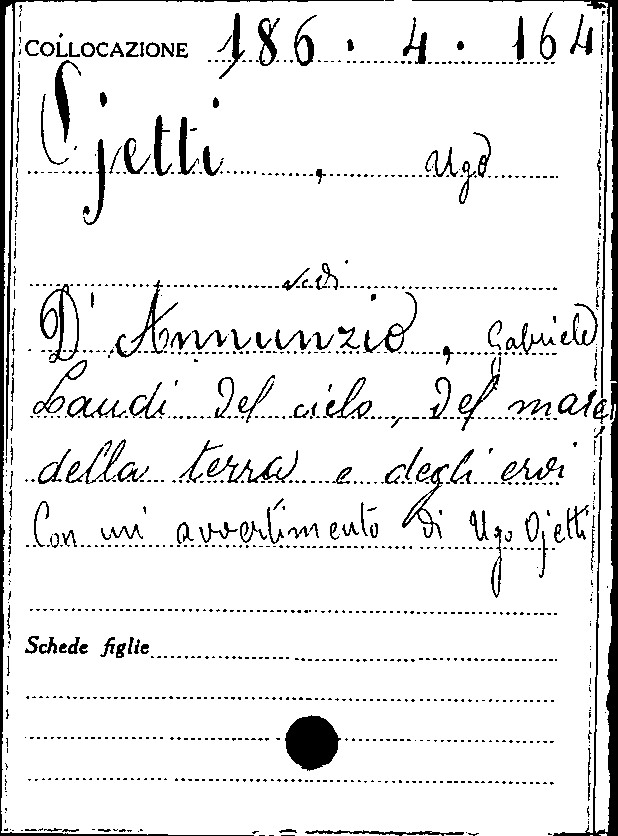 COLLOCAZIONE 186 . 4 . 164
Ojetti, Ugo
vedi
D'Annunzio, Gabriele
Laudi del cielo, del mare,
della terra e degli eroi
Con un' avvertimento di Ugo Ojetti
Schede figlie